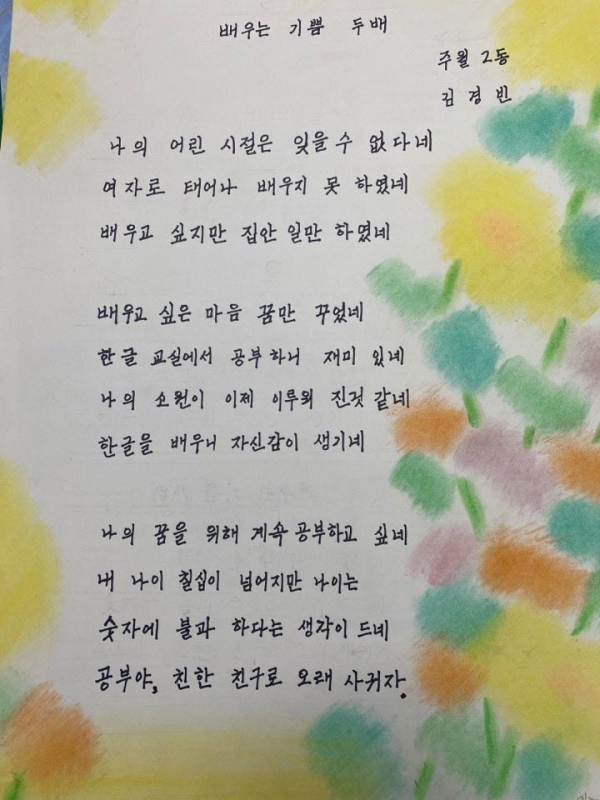 배우는 기쁨 두배
주월 2동
김경빈
나의 어린 시절은 잊을수 없다네
여자로 태어나 배우지 못 하였네
배우고 싶지만 집안 일만 하였네
배우고 싶은 마음 꿈만 꾸었네
한글 교실에서 공부하니 재미 있네
나의 소원이 이제 이루워 진것 같네
한글을 배우니 자신감이 생기네
나의 꿈을 위해 계속 공부하고 싶네
내 나이 칠십이 넘어지만 나이는
숫자에 불과 하다는 생각이 드네
공부야, 친한 친구로 오래 사귀자.